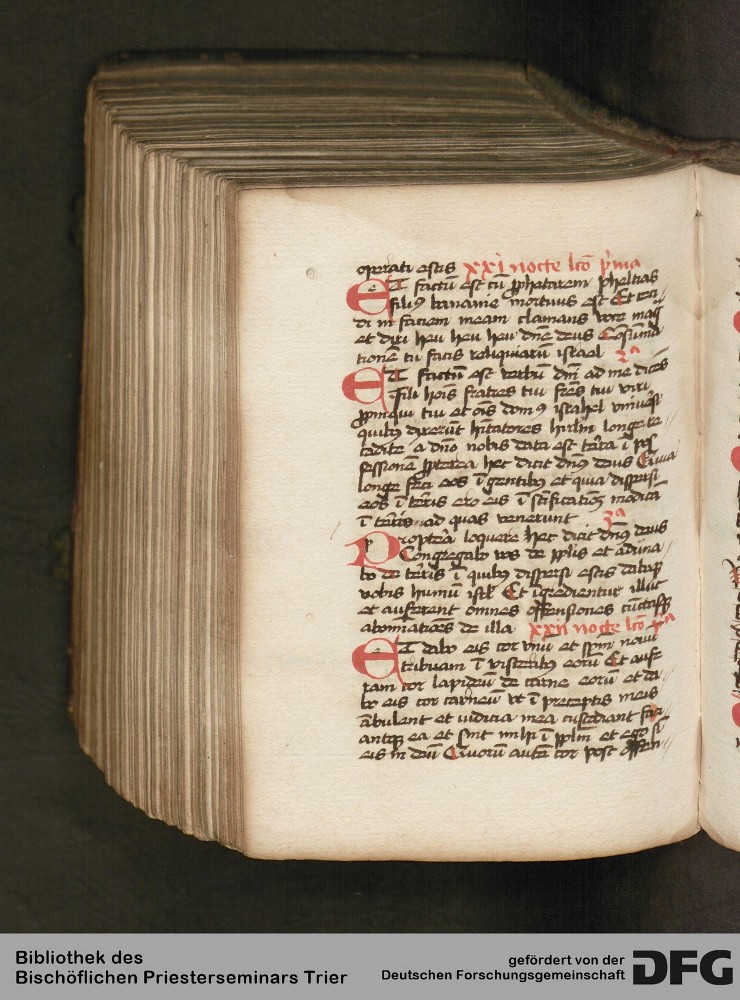 operati estis xxi nocte lcō p̄ma
ET factū est cū ꝓphetarem pheltias
filiꝰ banaaie mortuus est Et ceci
di in faciem meam clamans voce mag
et dixi heu heu heu dn̄e deus Cōsūma
tionē tu facis reliquiarū israel 2ᵃ
ET factū est verbū dn̄i ad me dicēs
fili hoīs fratres tui frēs tui viri
ꝓpinqui tui et oīs domꝰ israhel vniuersi
quibꝫ dixerūt hītatores hirlm̄ longe re
cedite a dn̄o nobis data est terra ī pos
sessionē ꝓpterea hec dicit dn̄us deus Quia
longe feci eos ī gentibꝫ et quia dispersi
eos ī terris ero eis ī scīficationē modicā
ī terris ad quas venerunt 3ᵃ
Propterea loquere hec dicit dn̄us deus
Congregabo vos de pplis et aduna
bo de terris ī quibꝫ dispersi estis daboqꝫ
vobis humū isrl̄ Et īgredientur illuc
et auferent omnes offensiones cūctasqꝫ
abominatiōes de illa xxii nocte lcō pᵃ
ET dabo eis cor vnū et spm̄ nouū
tribuam ī visceribꝫ eorū Et aufe
ram cor lapideū de carne eorū et da
bo eis cor carneū vt ī preceptis meis
ābulent et iudicia mea custodiant faci
antqꝫ ea et sint mihi ī pplm̄ et ego sī
eis in deū Quorū autē cor post offen
Bibliothek des
Bischöflichen Priesterseminars Trier
gefördert von der
Deutschen Forschungsgemeinschaft
DFG